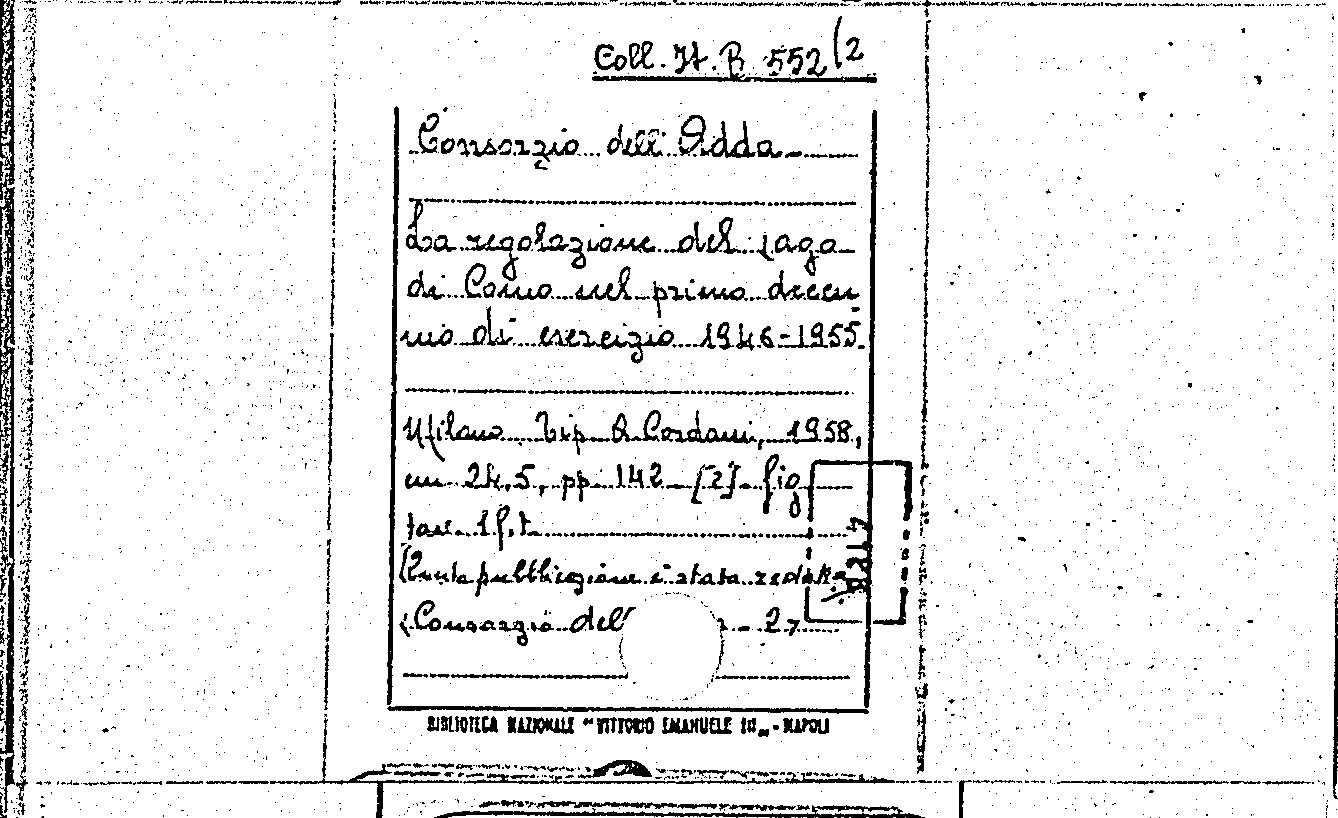 Coll. It. B 552/2
Consorzio dell'Adda
La regolazione del lago
di Como nel primo decen-
nio di esercizio 1946-1955.
Milano. Tip. A. Cordani, 1958,
cm 24,5, pp. 142 - [2] - fig
tav. 1 f. t.
pubblicazione è stata redatta
(Consorzio dell' - 27
BIBLIOTECA NAZIONALE "VITTORIO EMANUELE III" - NAPOLI